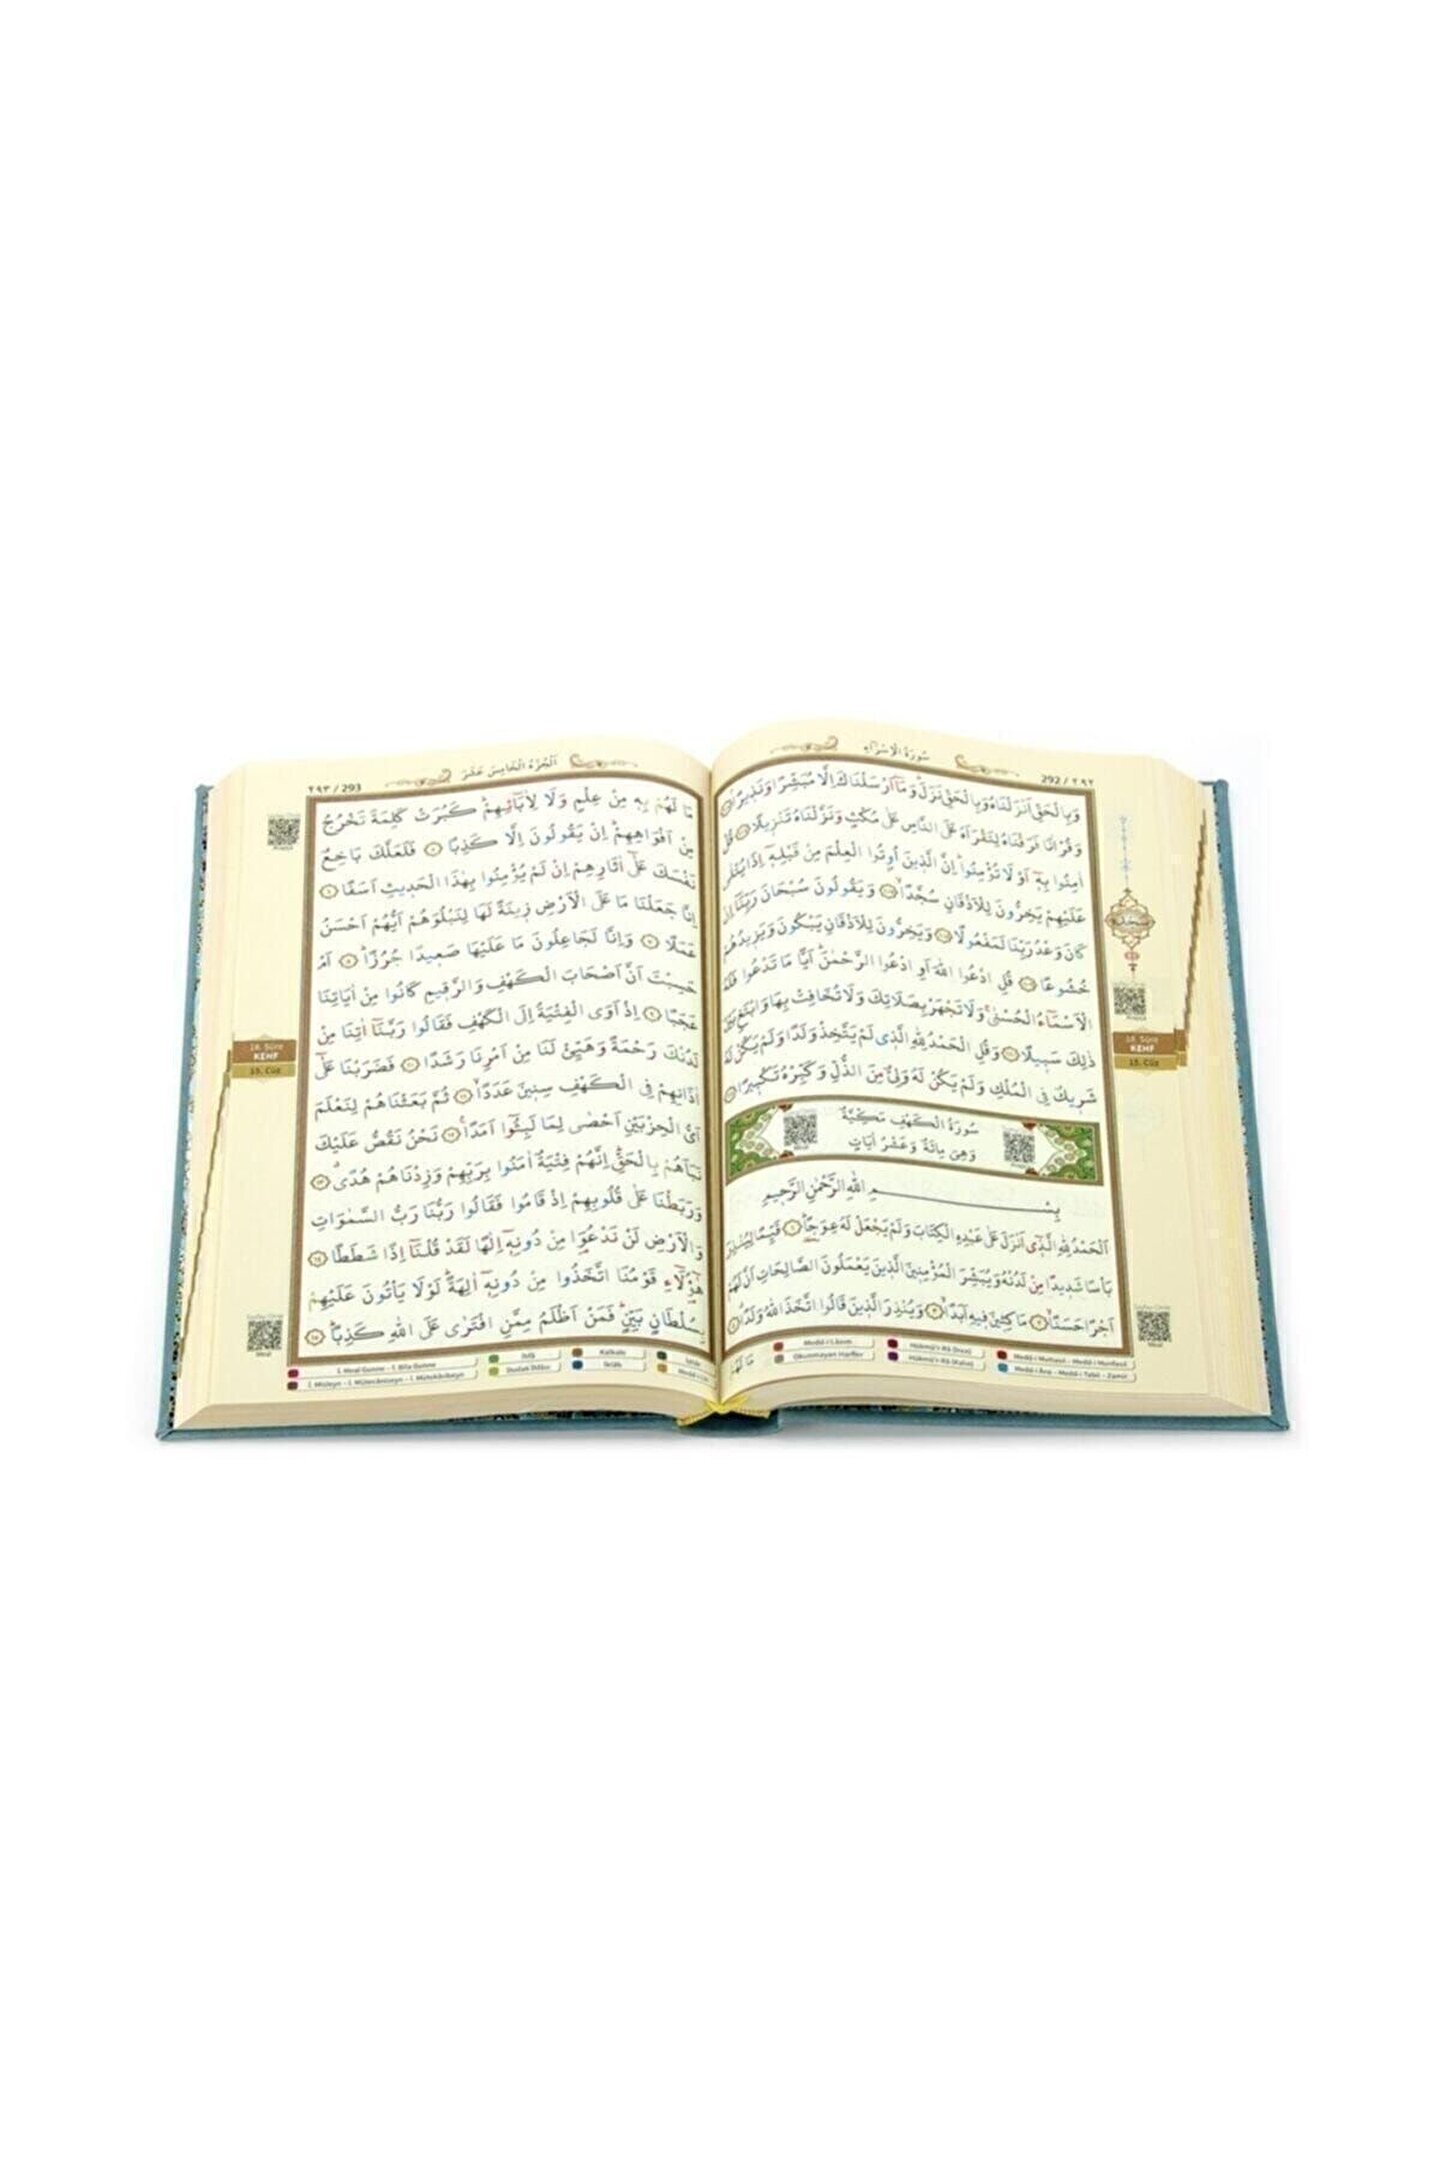 سُورَةُ الْاِسْرَاءِ
292 / ٢٩٢
وَبِالْحَقِّ اَنْزَلْنَاهُ وَبِالْحَقِّ نَزَلَ وَمَٓا اَرْسَلْنَاكَ اِلَّا مُبَشِّرًا وَنَذٖيرًا
وَقُرْاٰنًا فَرَقْنَاهُ لِتَقْرَاَهُ عَلَى النَّاسِ عَلٰى مُكْثٍ وَنَزَّلْنَاهُ تَنْزٖيلًا قُلْ
اٰمِنُوا بِهٖٓ اَوْ لَا تُؤْمِنُوا اِنَّ الَّذٖينَ اُوتُوا الْعِلْمَ مِنْ قَبْلِهٖٓ اِذَا يُتْلٰى
عَلَيْهِمْ يَخِرُّونَ لِلْاَذْقَانِ سُجَّدًا وَيَقُولُونَ سُبْحَانَ رَبِّنَٓا اِنْ
كَانَ وَعْدُ رَبِّنَا لَمَفْعُولًا وَيَخِرُّونَ لِلْاَذْقَانِ يَبْكُونَ وَيَزٖيدُهُمْ
خُشُوعًا قُلِ ادْعُوا اللّٰهَ اَوِ ادْعُوا الرَّحْمٰنَ اَيًّا مَا تَدْعُوا فَلَهُ
الْاَسْمَٓاءُ الْحُسْنٰى وَلَا تَجْهَرْ بِصَلَاتِكَ وَلَا تُخَافِتْ بِهَا وَابْتَغِ بَيْنَ
ذٰلِكَ سَبٖيلًا وَقُلِ الْحَمْدُ لِلّٰهِ الَّذٖى لَمْ يَتَّخِذْ وَلَدًا وَلَمْ يَكُنْ لَهُ
شَرٖيكٌ فِى الْمُلْكِ وَلَمْ يَكُنْ لَهُ وَلِىٌّ مِنَ الذُّلِّ وَكَبِّرْهُ تَكْبٖيرًا
18. Sûre
KEHF
15. Cüz
سُورَةُ الْكَهْفِ مَكِّيَّةٌ
وَهِىَ مِائَةٌ وَعَشْرُ اٰيَاتٍ
بِسْمِ اللّٰهِ الرَّحْمٰنِ الرَّحٖيمِ
اَلْحَمْدُ لِلّٰهِ الَّذٖٓى اَنْزَلَ عَلٰى عَبْدِهِ الْكِتَابَ وَلَمْ يَجْعَلْ لَهُ عِوَجًا قَيِّمًا لِيُنْذِرَ
بَاْسًا شَدٖيدًا مِنْ لَدُنْهُ وَيُبَشِّرَ الْمُؤْمِنٖينَ الَّذٖينَ يَعْمَلُونَ الصَّالِحَاتِ اَنَّ لَهُمْ
اَجْرًا حَسَنًا مَاكِثٖينَ فٖيهِ اَبَدًا وَيُنْذِرَ الَّذٖينَ قَالُوا اتَّخَذَ اللّٰهُ وَلَدًا
مَا لَهُمْ
Medd-i Lâzım
Okunmayan Harfler
Hükmü'r-Râ (İnce)
Hükmü'r-Râ (Kalın)
Medd-i Muttasıl - Medd-i Munfasıl
Medd-i Ârız - Medd-i Tabii - Zamir
اَلْجُزْءُ الْخَامِسَ عَشَرَ
٢٩٣ / 293
مَا لَهُمْ بِهٖ مِنْ عِلْمٍ وَلَا لِاٰبَٓائِهِمْ كَبُرَتْ كَلِمَةً تَخْرُجُ
مِنْ اَفْوَاهِهِمْ اِنْ يَقُولُونَ اِلَّا كَذِبًا فَلَعَلَّكَ بَاخِعٌ
نَفْسَكَ عَلٰٓى اٰثَارِهِمْ اِنْ لَمْ يُؤْمِنُوا بِهٰذَا الْحَدٖيثِ اَسَفًا
اِنَّا جَعَلْنَا مَا عَلَى الْاَرْضِ زٖينَةً لَهَا لِنَبْلُوَهُمْ اَيُّهُمْ اَحْسَنُ
عَمَلًا وَاِنَّا لَجَاعِلُونَ مَا عَلَيْهَا صَعٖيدًا جُرُزًا اَمْ
حَسِبْتَ اَنَّ اَصْحَابَ الْكَهْفِ وَالرَّقٖيمِ كَانُوا مِنْ اٰيَاتِنَا
عَجَبًا اِذْ اَوَى الْفِتْيَةُ اِلَى الْكَهْفِ فَقَالُوا رَبَّنَٓا اٰتِنَا مِنْ
لَدُنْكَ رَحْمَةً وَهَيِّئْ لَنَا مِنْ اَمْرِنَا رَشَدًا فَضَرَبْنَا عَلٰٓى
اٰذَانِهِمْ فِى الْكَهْفِ سِنٖينَ عَدَدًا ثُمَّ بَعَثْنَاهُمْ لِنَعْلَمَ
اَىُّ الْحِزْبَيْنِ اَحْصٰى لِمَا لَبِثُٓوا اَمَدًا نَحْنُ نَقُصُّ عَلَيْكَ
نَبَاَهُمْ بِالْحَقِّ اِنَّهُمْ فِتْيَةٌ اٰمَنُوا بِرَبِّهِمْ وَزِدْنَاهُمْ هُدًى
وَرَبَطْنَا عَلٰى قُلُوبِهِمْ اِذْ قَامُوا فَقَالُوا رَبُّنَا رَبُّ السَّمٰوَاتِ
وَالْاَرْضِ لَنْ نَدْعُوَا مِنْ دُونِهٖٓ اِلٰهًا لَقَدْ قُلْنَٓا اِذًا شَطَطًا
هٰٓؤُلَٓاءِ قَوْمُنَا اتَّخَذُوا مِنْ دُونِهٖٓ اٰلِهَةً لَوْلَا يَاْتُونَ عَلَيْهِمْ
بِسُلْطَانٍ بَيِّنٍ فَمَنْ اَظْلَمُ مِمَّنِ افْتَرٰى عَلَى اللّٰهِ كَذِبًا
18. Sûre
KEHF
15. Cüz
İ. Meal Gunne - İ. Bila Gunne
İ. Misleyn - İ. Mütecâniseyn - İ. Mütekâribeyn
İhfâ
Dudak İhfâsı
Kalkale
İklâb